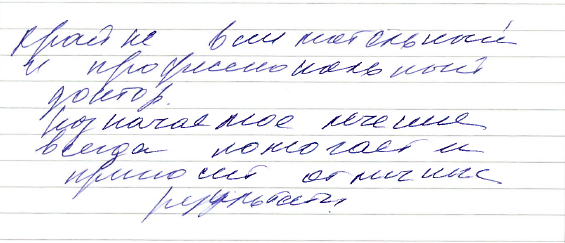 крайне внимательный
и профессиональный
доктор.
назначаемое лечение
всегда помогает и
приносит отличные
результаты.